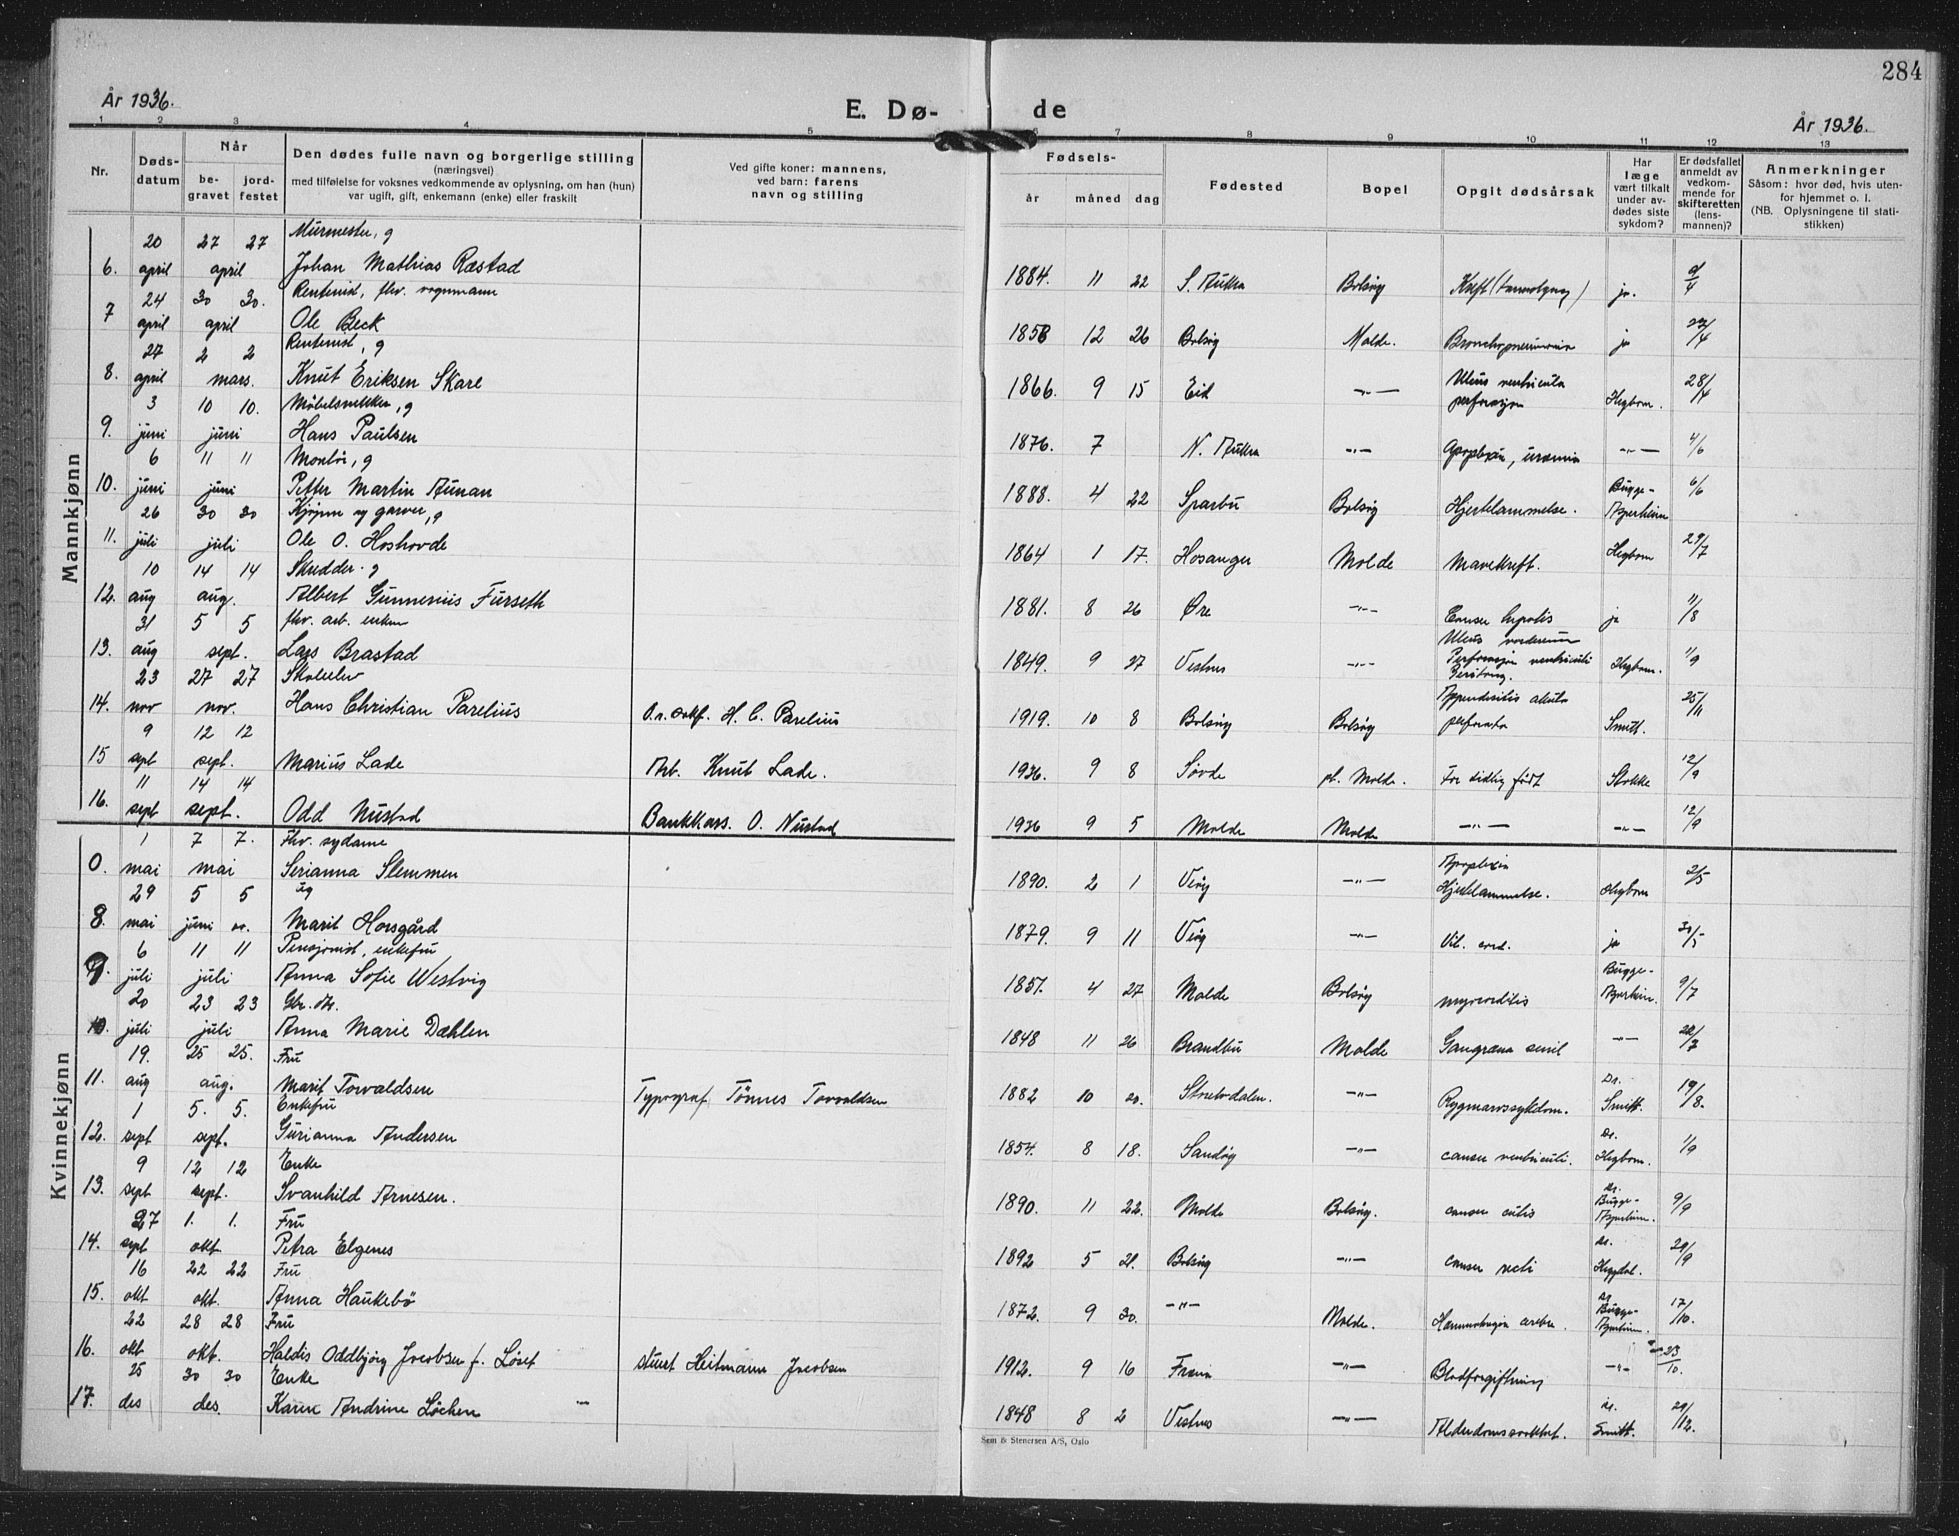 284
År 1936.
E. Dø- de
År 1936.
1 2 3 4 5 6 7 8 9 10 11 12 13
Nr.
Døds-
datum
Når
be-
gravet
jord-
festet
Den dødes fulle navn og borgerlige stilling
(næringsvei)
med tilføielse for voksnes vedkommende av oplysning, om han (hun)
var ugift, gift, enkemann (enke) eller fraskilt
Ved gifte koner: mannens,
ved barn: farens
navn og stilling
Fødsels-
år måned dag
Fødested
Bopel
Opgit dødsårsak
Har
læge
vært tilkalt
under av-
dødes siste
sykdom?
Er dødsfallet
anmeldt av
vedkom-
mende for
skifteretten
(lens-
mannen)?
Anmerkninger
Såsom: hvor død, hvis uten-
for hjemmet o. l.
(NB. Oplysningene til stati-
stikken)
Mannkjønn
20 27 27 Murmester, g
6. april april Johan Mathias Ræstad 1884. 11 22 S. Aukra Bolsøy Kreft ja.
24 30 30. Rentenist, fhv. vognmann
7 april april Ole Beck 1858 12 26 Bolsøy Molde. Bronchopneumonia ja 27/4
27 2 2 Rentenist, g
8. april mars. Knut Eriksen Skare 1866. 9 15 Eid -„- Ulcus ventricula Hegbom. 28/4
3 10 10. Møbelsnekker, g
9. juni juni Hans Paulsen 1876. 7 N. Aukra -„- Apoplexia, uræmia -„- 4/6
6 11 11 Montør, g
10. juni juni Petter Martin Aunan 1888. 4 22 Sparbu Bolsøy Hjertelammelse. Bugge- 6/6
26 30 30 Kjøpm og garver, g
11. juli juli Ole O. Hoshovde 1864 1 17. Hosanger Molde Mavekreft. Hegbom 29/7
10 14 14 Skredder. g
12. aug aug. Albert Gunnerius Furseth 1881. 8 26 Øre -„- Cancer hepatis ja 11/8
31 5 5 fhv. arb. enkem
13. aug sept. Lars Brastad 1849. 9 27 Vestnes -„- Ulcus Perforasjon ventriculi Hegbom. 1/9
23 27 27 Skoleelev
14. nov nov. Hans Christian Parelius O.r.sakf. H. C. Parelius 1919. 10 8 Bolsøy Bolsøy Appendisitis akuta perforata Smitt. 25/11
9 12 12
15 sept sept. Marius Lade Arb. Knut Lade. 1936. 9 8 Søvde pl. Molde. For tidlig født Stokke 12/9
11 14 14
16. sept sept. Odd Nustad Bankkass. O. Nustad 1936 9 5 Molde Molde -„- -„- 12/9
Kvinnekjønn
1 7 7. Fhv. sydame
0. mai mai Serianna Slemmen 1890. 2 1 Veøy -„- Apoplexia Hjertelammelse. Hegbom 2/5
29 5 5 ug
8. mai juni Marit Horsgård 1879. 9 11 Veøy -„- Vit. cord. ja 30/5
6 11 11 Pensjonist, enkefru
9. juli juli Anna Sofie Westvig 1857. 4 27 Molde Bolsøy myocarditis Bugge- 9/7
20 23 23 Gbr. dtr.
10. juli juli Anna Marie Dæhlen 1848 11 26 Brandbu Molde Gangræna senil -„- 20/7
19. 25 25. Fru
11. aug aug. Marit Torvaldsen Typograf Tønnes Torvaldsen 1882 10 20. -„- Rygmarvssykdom. Dr. Smitt. 19/8.
1 5. 5. Enkefru
12. sept sept. Gurianna Andersen 1854. 8 18. Sandøy -„- cancer ventriculi. Dr. Hegbom. 1/9
9 12 12 Enke
13. sept sept. Svanhild Arnesen. 1890. 11 22. Molde Bolsøy. cancer cutis Dr. Bugge- 9/9
27 1. 1. Fru
14. sept okt. Petra Elgenes 1892 5 21. Bolsøy -„- cancer recti Dr. 29/9
16 22 22 Fru
15. okt okt. Anna Haukebø 1872. 9 30. -„- Molde. Dr. Bugge- 17/10.
22 28 28 Fru
16. okt okt. Haldis Oddbjørg Jacobsen f. Løset stuert Heitmann Jacobsen 1912. 9 16 Fræna -„- Blodforgiftning -„- 23/10.
25 30 30 Enke
17. des des. Karen Andrine Løchen -„- 1848 8 2 Vestnes -„- Dr. Smitt. 29/12.
Sem & Stenersen A/S, Oslo